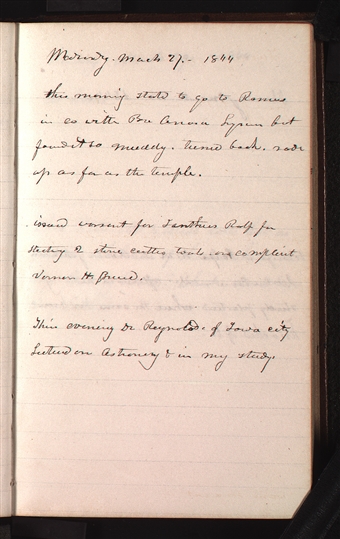 Monday. March 27.- 1844
this morning statd to go to Ramus
in co with Bro Amasa Lyman but
found it so muddy. turned back. rode
up as far as the temple.
issued warrant for Ianthus Rolf for
stealing 2 stone cutters tools, on complaint
Vernon H. Bruce.
This evening Dr Reynolds of Iowa city
Lectured on Astronomy &c in my study.